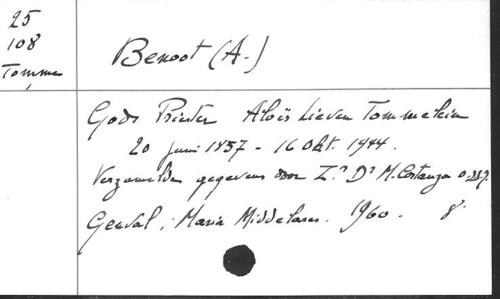 25
108
Tommes
Benoot (A.)
Gods Priester Aloïs Lieven Tommelein
20 juni 1857 - 16 Okt. 1944.
Verzamelde gegevens door Z. Dr M. Costanza
Genval, Maria Middelares. 1960. 8°